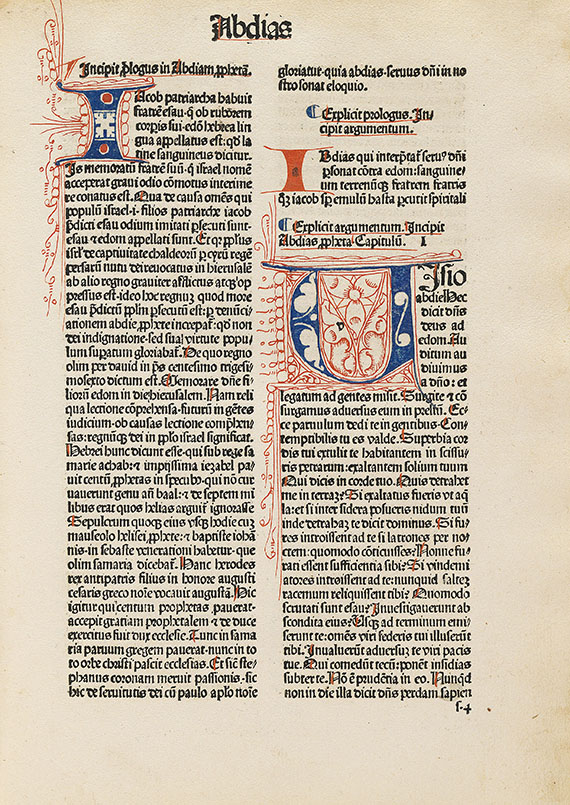 Abdias
Incipit ꝓlogus in Abdiam ꝓphetā.
Iacob patriarcha habuit
fratrē esau·q̄ ob ruborem
corpis sui·edō hebrea lin
gua appellatus est:qd la
tine sanguineus dicitur.
Is memoratū fratrē suū·q israel nomē
acceperat gravi odio cōmotus interime
re conatus est. Qua de causa omēs qui
populū israel·i·filios patriarche iacob
p̄dicti esau odium imitati ꝑsecuti sunt·
esau et edom appellati sunt. Et qꝛ pplsus
isrl' de captiuitate chaldeorū p cyrū regē
persarū nutu dei reuocatus in hierusalē
ab alio regno grauiter afflictus atqꝫ op
pressus est·ideo hoc regnuꝫ quod more
esau p̄dictū pplm ꝑsecutū est·ꝑ denūci/
ationem abdie·ꝓphete increpat̄·qd non
dei indignatione·sed sua virtute popu
lum supatum gloriabat̄. De quo regno
olim per david in ps̄ centesimo trigesi/
mosexto dictum est. Memorare dn̄e fi
liorū edom in die hierusalem. Nam reli
qua lectione cōprehensa·futurū in gētes
iudicium·ob causas lectione cōplexn̄
sas:regnūqꝫ dei in pplo israel significat.
Hebrei hunc dicunt esse·qui sub rege sa
marie achab·et impijssima iezabel pa/
uit centū ꝓphetas in specubꝰ·qui nō cur
uauerunt genu añ baal:et de septem mi
libus erat quos helias arguit̄ ignorasse
Sepulcrum quoqꝫ eius vsqꝫ hodie cuꝫ
mauseolo helisei·ꝓphete:et baptiste iohā
nis·in sebaste venerationi habetur·que
olim samaria dicebat̄. Hanc herodes
rex antipatris filius in honore augusti
cesaris greco noīe vocauit augustā. Hic
igitur qui centum prophetas pauerat·
accepit gratiam prophetalem:et de duce
exercitus fuit dux ecclesie. Tunc in sama
ria paruum gregem pauerat·nunc in to
to orbe christi pascit ecclesias. Et sic̄ ste/
phanus coronam meruit passionis·sic
hic de seruitutis dei cū paulo aplo noīe
gloriatur·quia abdias·seruus dn̄i in no
stro sonat eloquio.
Explicit prologus. In/
cipit argumentum.
Abdias qui interp̄tat̄ seruꝰ dn̄i
ꝑsonat cōtra edom:sanguine/
um terrenūqꝫ fratrem fratris
qꝫ iacob sp̄ emulū hasta ꝑcutit spiritali
Explicit argumentum. Incipit
Abdias ꝓpheta Capitulū. I
Uisio
abdie Hec
dicit dn̄s
deus ad
edom. Au
ditum au
diuimus
a dn̄o: et
legatum ad gentes misit. Surgite et cō
surgamus aduersus eum in preliū. Ec/
ce paruulum dedi te in gentibus. Con
temptibilis tu es valde. Superbia cor
dis tui extulit te habitantem in scissu/
ris petrarum:exaltantem solium tuum
Qui dicis in corde tuo. Quis detrahet
me in terrā? Si exaltatus fueris vt aq̄
la:et si inter sidera posueris nidum tuū
inde detrahaꝫ te dicit dominus. Si fu/
res introissent ad te si latrones per no/
ctem:quomodo cōticuisses? Nonne fu/
rati essent sufficientia sibi? Si vindemi
atores introissent ad te:nunquid saltē
racemum reliquissent tibi? Quomodo
scrutati sunt esau? Inuestigauerunt ab
scondita eius? Usqꝫ ad terminum emi/
serunt te:omēs viri federis tui illuserūt
tibi. Inualuerūt aduersꝰ te viri pacis
tue. Qui comedūt tecū:ponēt insidias
subter te. Nō ē prudētia in eo. Nūqd
non in die illa dicit dn̄s perdam sapien
f·4